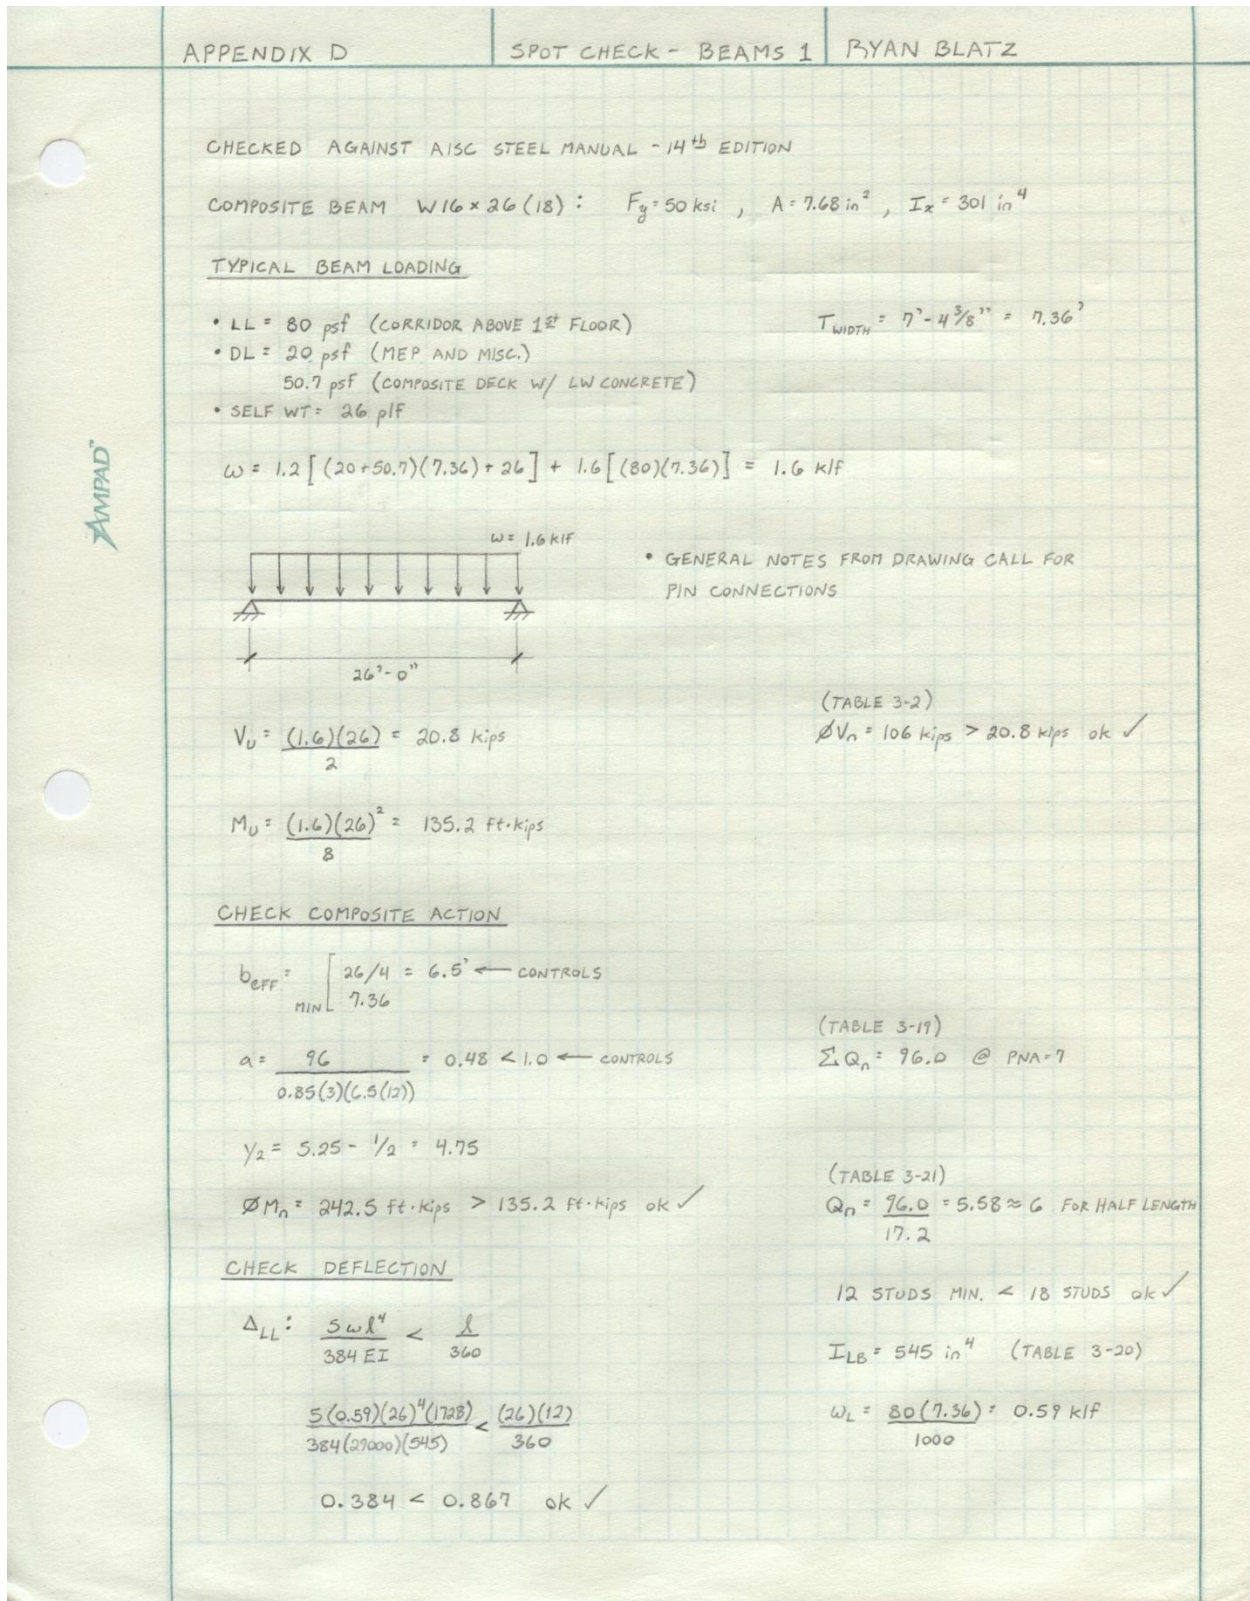 APPENDIX D SPOT CHECK - BEAMS 1 RYAN BLATZ
CHECKED AGAINST AISC STEEL MANUAL - 14th EDITION
COMPOSITE BEAM W16×26(18): Fy = 50 ksi, A = 7.68 in², Ix = 301 in⁴
TYPICAL BEAM LOADING
• LL = 80 psf (CORRIDOR ABOVE 1st FLOOR) TWIDTH = 7'-4 3/8" = 7.36'
• DL = 20 psf (MEP AND MISC.)
50.7 psf (COMPOSITE DECK W/ LW CONCRETE)
• SELF WT = 26 plf
ω = 1.2[(20+50.7)(7.36)+26] + 1.6[(80)(7.36)] = 1.6 klf
ω = 1.6 klf
• GENERAL NOTES FROM DRAWING CALL FOR
PIN CONNECTIONS
26'-0"
(TABLE 3-2)
Vu = (1.6)(26)/2 = 20.8 kips ØVn = 106 kips > 20.8 kips ok ✓
Mu = (1.6)(26)²/8 = 135.2 ft·kips
CHECK COMPOSITE ACTION
beFF = MIN [ 26/4 = 6.5' ← CONTROLS
7.36
(TABLE 3-19)
a = 96/0.85(3)(6.5(12)) = 0.48 < 1.0 ← CONTROLS ΣQn = 96.0 @ PNA=7
Y2 = 5.25 - 1/2 = 4.75
(TABLE 3-21)
ØMn = 242.5 ft·kips > 135.2 ft·kips ok ✓ Qn = 96.0/17.2 = 5.58 ≈ 6 FOR HALF LENGTH
CHECK DEFLECTION
12 STUDS MIN. < 18 STUDS ok ✓
ΔLL: 5ωl⁴/384EI < l/360 ILB = 545 in⁴ (TABLE 3-20)
5(0.59)(26)⁴(1728)/384(29000)(545) < (26)(12)/360 ωL = 80(7.36)/1000 = 0.59 klf
0.384 < 0.867 ok ✓
AMPAD™